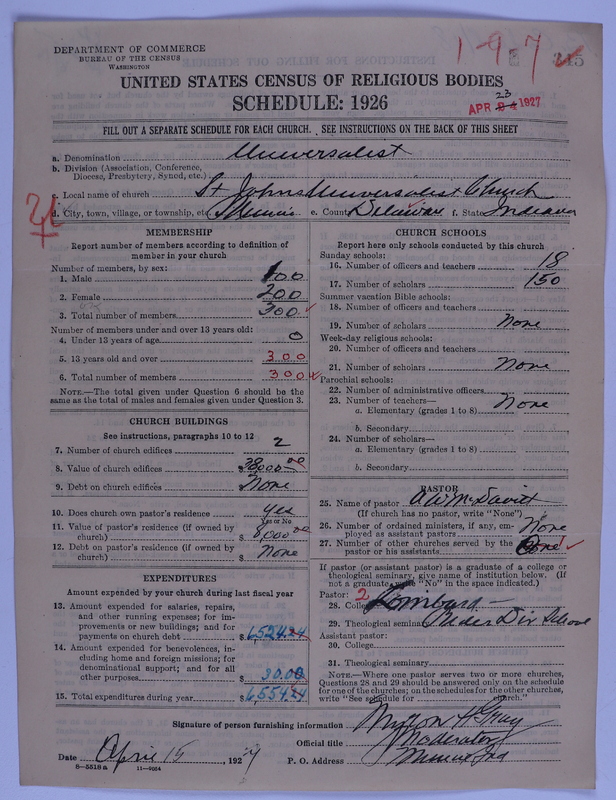 DEPARTMENT OF COMMERCE
BUREAU OF THE CENSUS
WASHINGTON
1-9 7
UNITED STATES CENSUS OF RELIGIOUS BODIES
SCHEDULE: 1926
APR 23 1927
FILL OUT A SEPARATE SCHEDULE FOR EACH CHURCH. SEE INSTRUCTIONS ON THE BACK OF THIS SHEET
a. Denomination Universalist
b. Division (Association, Conference, Diocese, Presbytery, Synod, etc.)
c. Local name of church St Johns Universalist Church
d. City, town, village, or township, etc. Muncie e. County Delaware f. State Indiana
MEMBERSHIP
Report number of members according to definition of member in your church
Number of members, by sex:
1. Male 100
2. Female 200
3. Total number of members 300
Number of members under and over 13 years old:
4. Under 13 years of age 0
5. 13 years old and over 300
6. Total number of members 300
NOTE.—The total given under Question 6 should be the same as the total of males and females given under Question 3.
CHURCH BUILDINGS
See instructions, paragraphs 10 to 12
7. Number of church edifices 2
8. Value of church edifices $38,000.00
9. Debt on church edifices $ None
10. Does church own pastor's residence? yes
Yes or No
11. Value of pastor's residence (if owned by church) $8,000.00
12. Debt on pastor's residence (if owned by church) $ None
EXPENDITURES
Amount expended by your church during last fiscal year
13. Amount expended for salaries, repairs, and other running expenses; for improvements or new buildings; and for payments on church debt $6,524.24
14. Amount expended for benevolences, including home and foreign missions; for denominational support; and for all other purposes $30.00
15. Total expenditures during year $6,554.24
CHURCH SCHOOLS
Report here only schools conducted by this church
Sunday schools:
16. Number of officers and teachers 18
17. Number of scholars 150
Summer vacation Bible schools:
18. Number of officers and teachers
19. Number of scholars None
Week-day religious schools:
20. Number of officers and teachers
21. Number of scholars None
Parochial schools:
22. Number of administrative officers
23. Number of teachers— None
a. Elementary (grades 1 to 8)
b. Secondary
24. Number of scholars—
a. Elementary (grades 1 to 8)
b. Secondary
PASTOR
25. Name of pastor A W McDavitt
(If church has no pastor, write "None")
26. Number of ordained ministers, if any, employed as assistant pastors None
27. Number of other churches served by the pastor or his assistants 1
If pastor (or assistant pastor) is a graduate of a college or theological seminary, give name of institution below. (If not a graduate write "No" in the space indicated.)
Pastor: 2
28. College Lombard
29. Theological seminary Ryder Div School
Assistant pastor:
30. College
31. Theological seminary
NOTE.—Where one pastor serves two or more churches, Questions 28 and 29 should be answered only on the schedule for one of the churches; on the schedules for the other churches, write "See schedule for church."
Signature of person furnishing information Milton H Gray
Official title Moderator
Date April 15, 1927 P. O. Address Muncie Ind
8—5518 a 11—9084